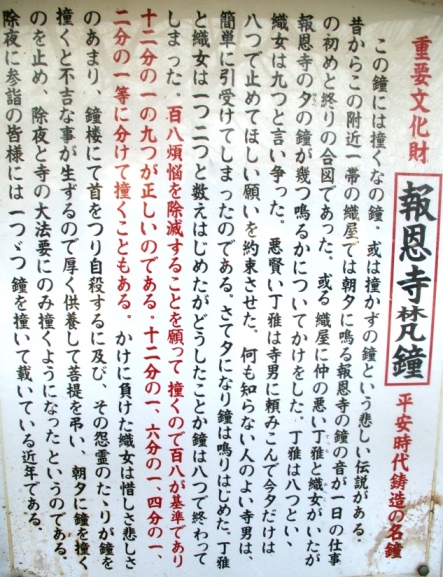 重要文化財
報恩寺梵鐘
平安時代鋳造の名鐘
この鐘には撞くなの鐘。或は撞かずの鐘という悲しい伝説がある。
昔からこの附近一帯の織屋では朝夕に鳴る報恩寺の鐘の音が一日の仕事
の初めと終りの合図であった、或る織屋に仲の悪い丁雅と織女がいたが
報恩寺の夕の鐘が幾つ鳴るかについてかけをした。丁雅は八つとい、
織女は九つと言い争った。悪賢い丁雅は寺男に頼みこんで今夕だけは
八つで止めてほしい願いを約束させた。何も知らない人のよい寺男は、
簡単に引受けてしまったのである。さて夕になり鐘は鳴りはじめた、丁雅
と織女は一つ二つと数えはじめたがどうしたことか鐘は八つで終わって
しまった。百八煩悩を除滅することを願って撞くので百八が基準であり
十二分の一の九つが正しいのである。十二分の一、六分の一、四分の一、
二分の一等に分けて撞くこともある。かけに負けた織女は惜しさ悲しさ
のあまり、鐘楼にて首をつり自殺するに及び、その怨霊のたゝりが鐘を
撞くと不吉な事が生ずるので厚く供養して菩提を弔い、朝夕に鐘を撞く
のを止め、除夜と寺の大法要にのみ撞くようになったというのである。
除夜に参詣の皆様には一つゞつ鐘を撞いて戴いている近年である。